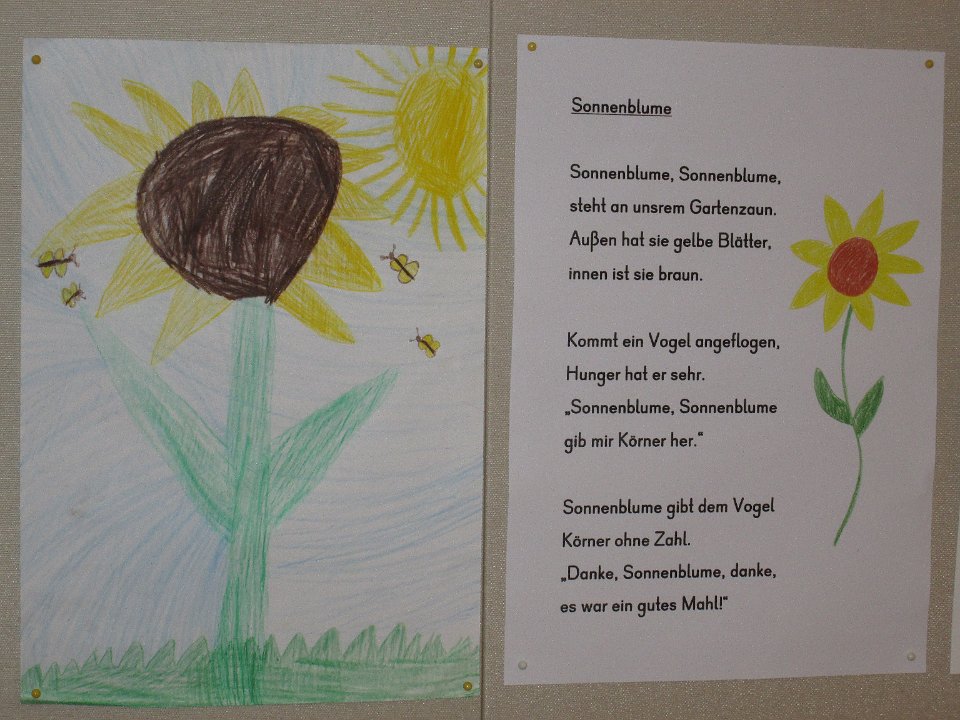 Sonnenblume
Sonnenblume, Sonnenblume,
steht an unsrem Gartenzaun.
Außen hat sie gelbe Blätter,
innen ist sie braun.
Kommt ein Vogel angeflogen,
Hunger hat er sehr.
„Sonnenblume, Sonnenblume
gib mir Körner her.“
Sonnenblume gibt dem Vogel
Körner ohne Zahl.
„Danke, Sonnenblume, danke,
es war ein gutes Mahl!“